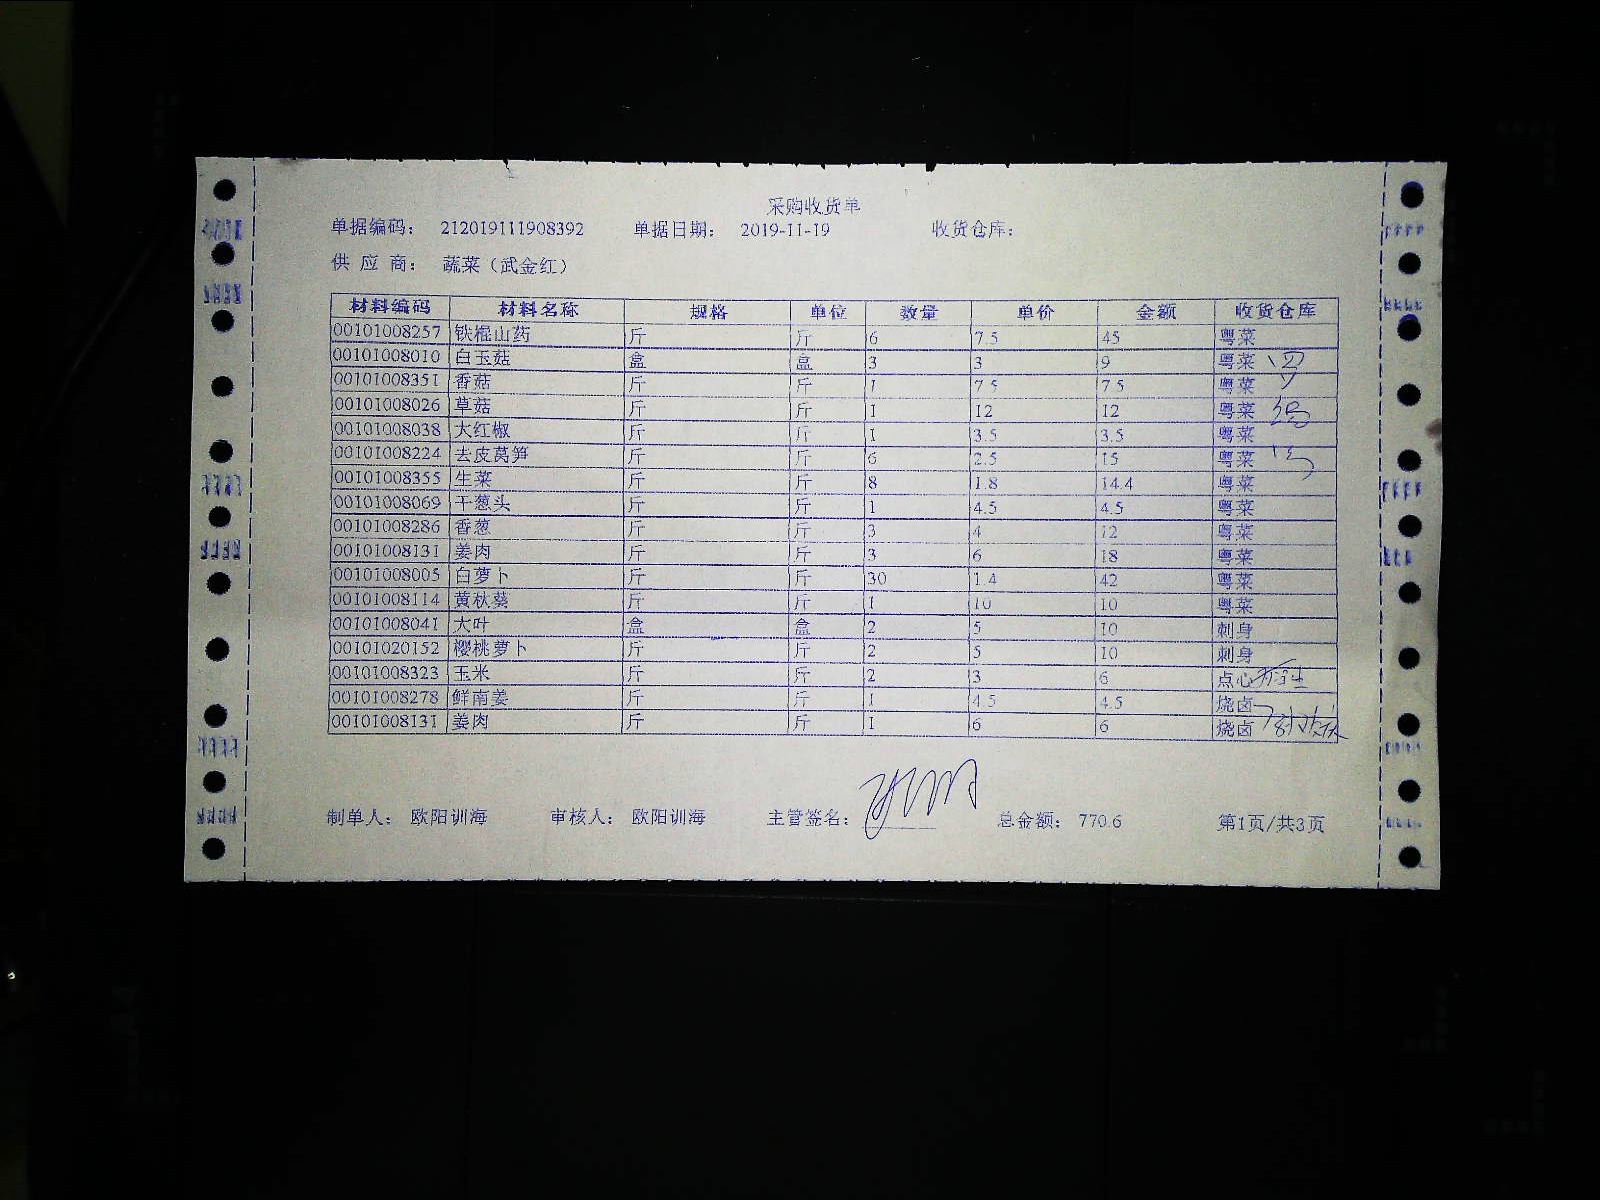 采购收货单
单据编码： 212019111908392 单据日期： 2019-11-19 收货仓库：
供 应 商： 蔬菜（武金红）
材料编码 材料名称 规格 单位 数量 单价 金额 收货仓库
00101008257 铁棍山药 斤 斤 6 7.5 45 粤菜
00101008010 白玉菇 盒 盒 3 3 9 粤菜
00101008351 香菇 斤 斤 1 7.5 7.5 粤菜
00101008026 草菇 斤 斤 1 12 12 粤菜
00101008038 大红椒 斤 斤 1 3.5 3.5 粤菜
00101008224 去皮莴笋 斤 斤 6 2.5 15 粤菜
00101008355 生菜 斤 斤 8 1.8 14.4 粤菜
00101008069 干葱头 斤 斤 1 4.5 4.5 粤菜
00101008286 香葱 斤 斤 3 4 12 粤菜
00101008131 姜肉 斤 斤 3 6 18 粤菜
00101008005 白萝卜 斤 斤 30 1.4 42 粤菜
00101008114 黄秋葵 斤 斤 1 10 10 粤菜
00101008041 大叶 盒 盒 2 5 10 刺身
00101020152 樱桃萝卜 斤 斤 2 5 10 刺身
00101008323 玉米 斤 斤 2 3 6 点心
00101008278 鲜南姜 斤 斤 1 4.5 4.5 烧卤
00101008131 姜肉 斤 斤 1 6 6 烧卤
制单人： 欧阳训海 审核人： 欧阳训海 主管签名： 总金额： 770.6 第1页/共3页